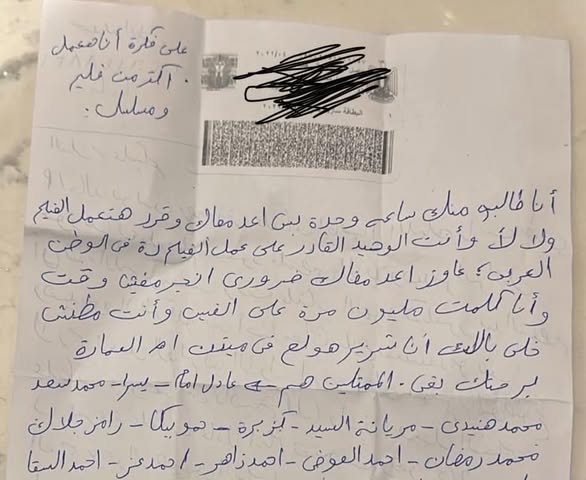 على فكرة أنا هعمل
أكتر من فيلم
ومسلسل.
أنا طالبه منك ساعه وحدة بس اعد معاك وقرر هتعمل الفيلم
ولا لأ وأنت الوحيد القادر على عمل الفيلم دة فى الوطن
العربى؛ عاوز اعد معاك ضرورى انجر مفيش وقت
وأنا كلمت مليون مرة على الفيس وأنت مطنش
خلى بالك أنا شرير هولع فى ام العمارة
بر حتك بقى. الممثلين هم ← عادل امام - يسرا - محمد سعد
محمد هنيدى - مريانة السيد - كزبرة - حمو بيكا - رامز جلال
محمد رمضان - احمد العوضى - احمد زاهر - احمد عز - احمد السقا